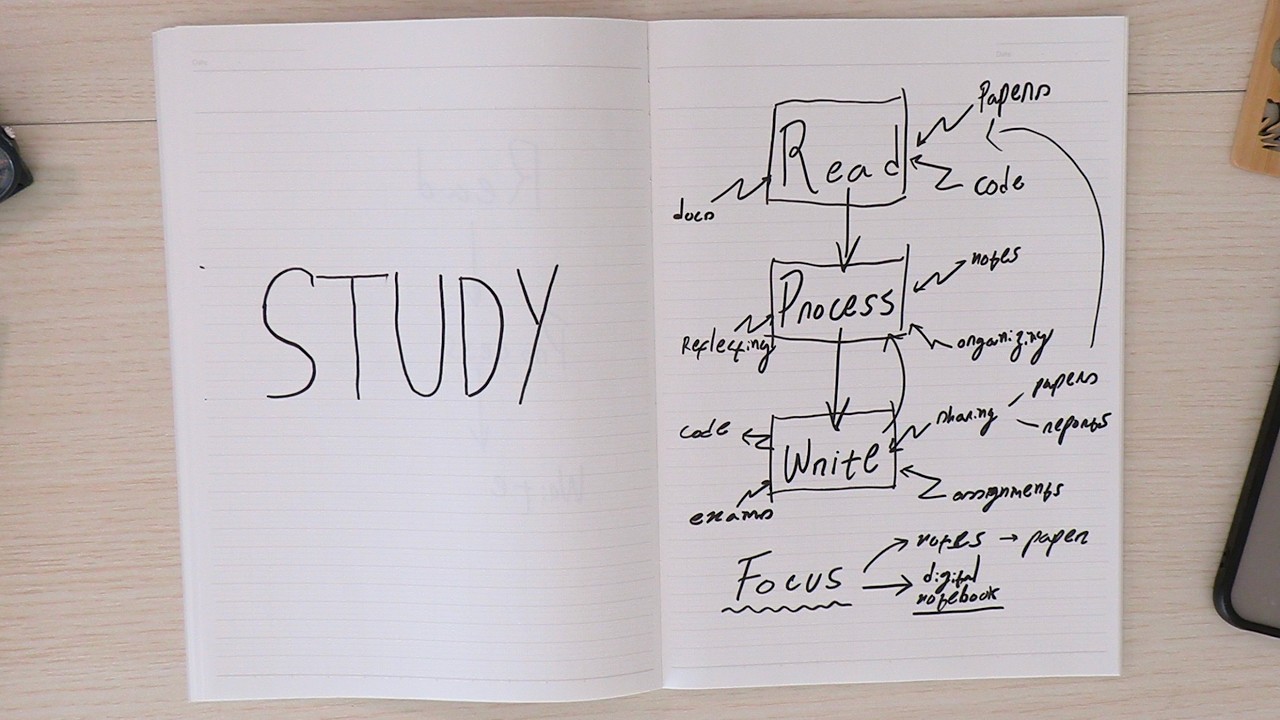 STUDY
Papers
Read
code
docs
notes
Process
Reflecting
organizing
papers
sharing
code
reports
Write
assignments
exams
notes → paper
Focus
digital
notebook